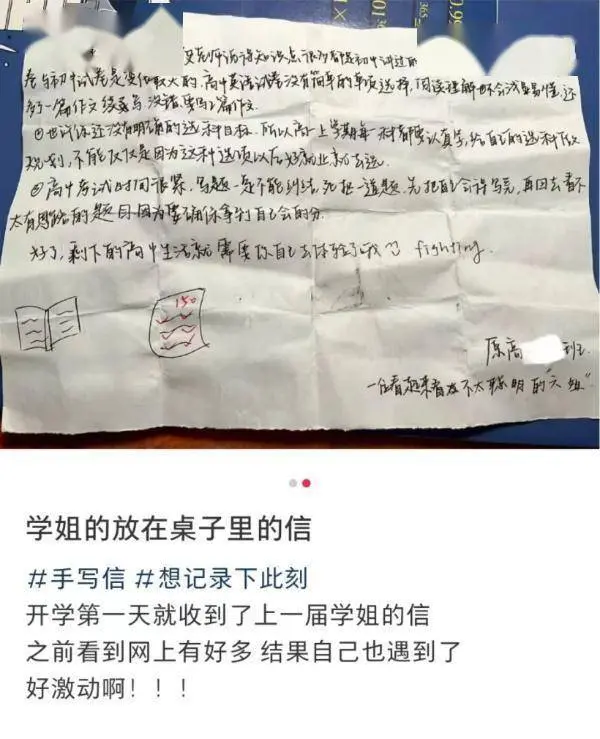 0.9
365
要老师讲得知识点,很多都是初中讲过的
卷与初中试卷是变化较大的,高中英语试卷没有简单的单项选择,阅读理解也不会浅显易懂,还
多了一篇作文续写
也许你还没有明确的选科目标,所以高一上学期每一科都要认真学,给自己的选科做
规划,不能仅仅是因为这科选项以后好就业就去选
高中考试时间很紧,写题一定不能纠结,死抠一道题,先把自己会得写完,再回去看不
太有思路的题目,因为要确保你拿到自己会的分
好了,剩下的高中生活就需要你自己去体验了哦 fighting
150
原高 班
一位看起来着不太聪明的"大姐"
学姐的放在桌子里的信
#手写信 #想记录下此刻
开学第一天就收到了上一届学姐的信
之前看到网上有好多 结果自己也遇到了
好激动啊!!!